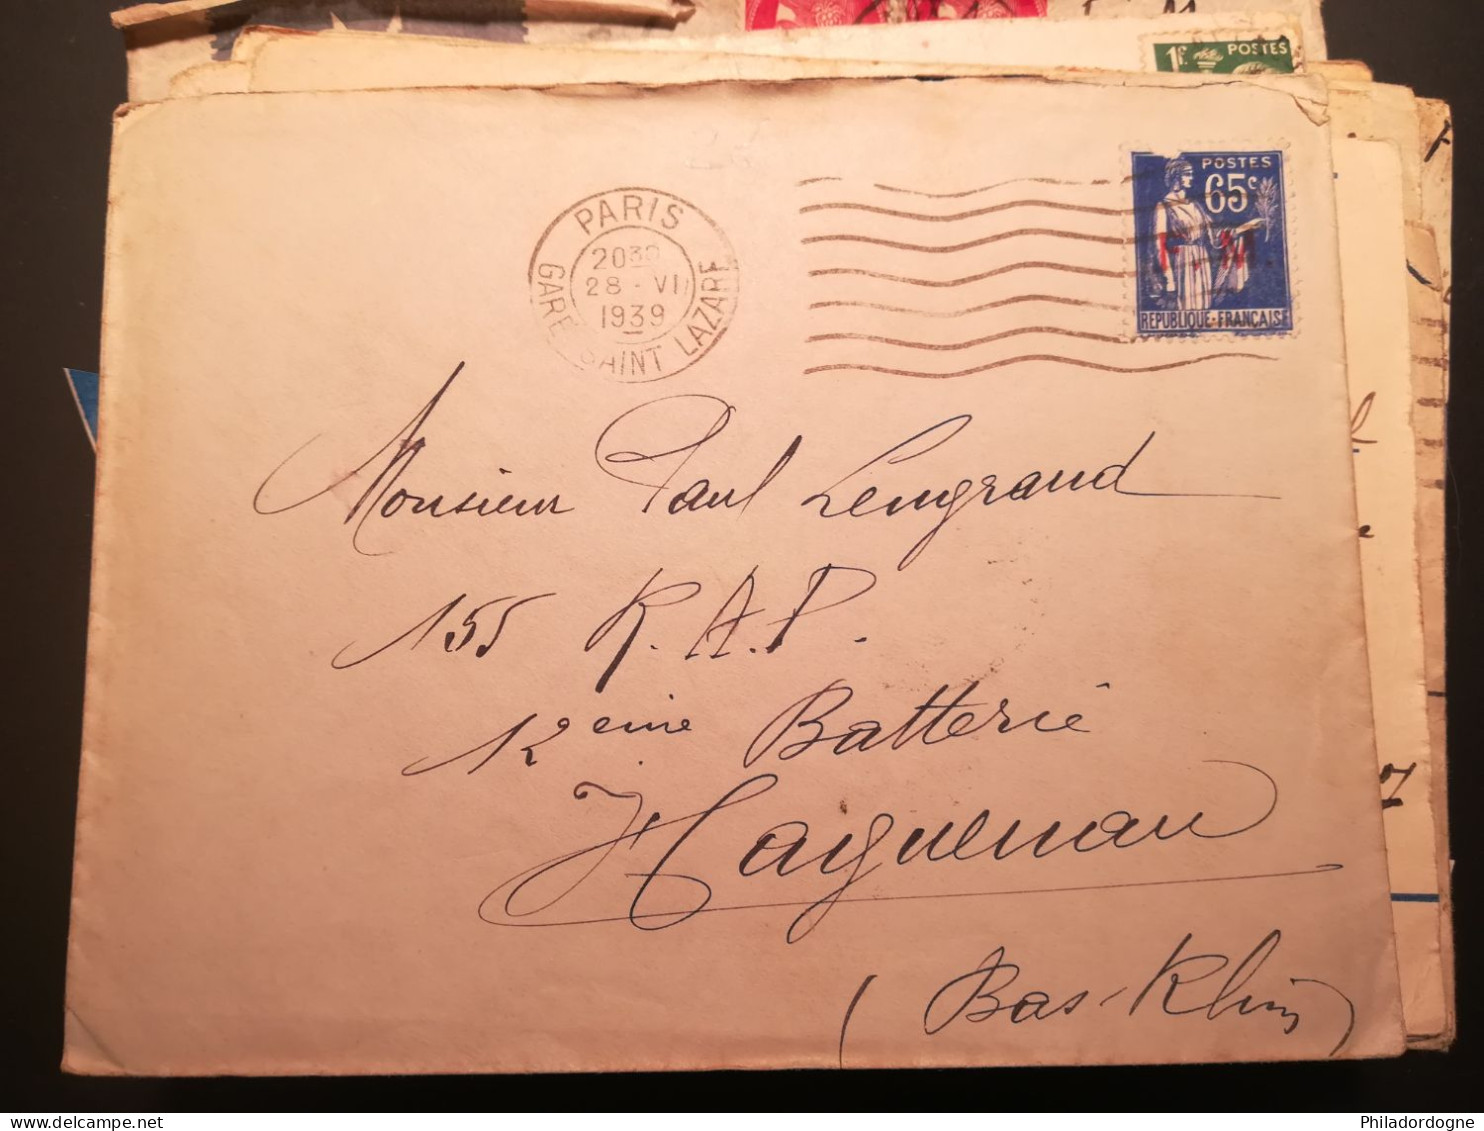 1F. POSTES
POSTES
65c
F. M.
REPUBLIQUE-FRANCAISE
PARIS
2030
28 - VII
1939
GARE SAINT LAZARE
Monsieur Paul Lengrand
155 R.A.P.
12eme Batterie
Haguenau
(Bas-Rhin)
Philadordogne